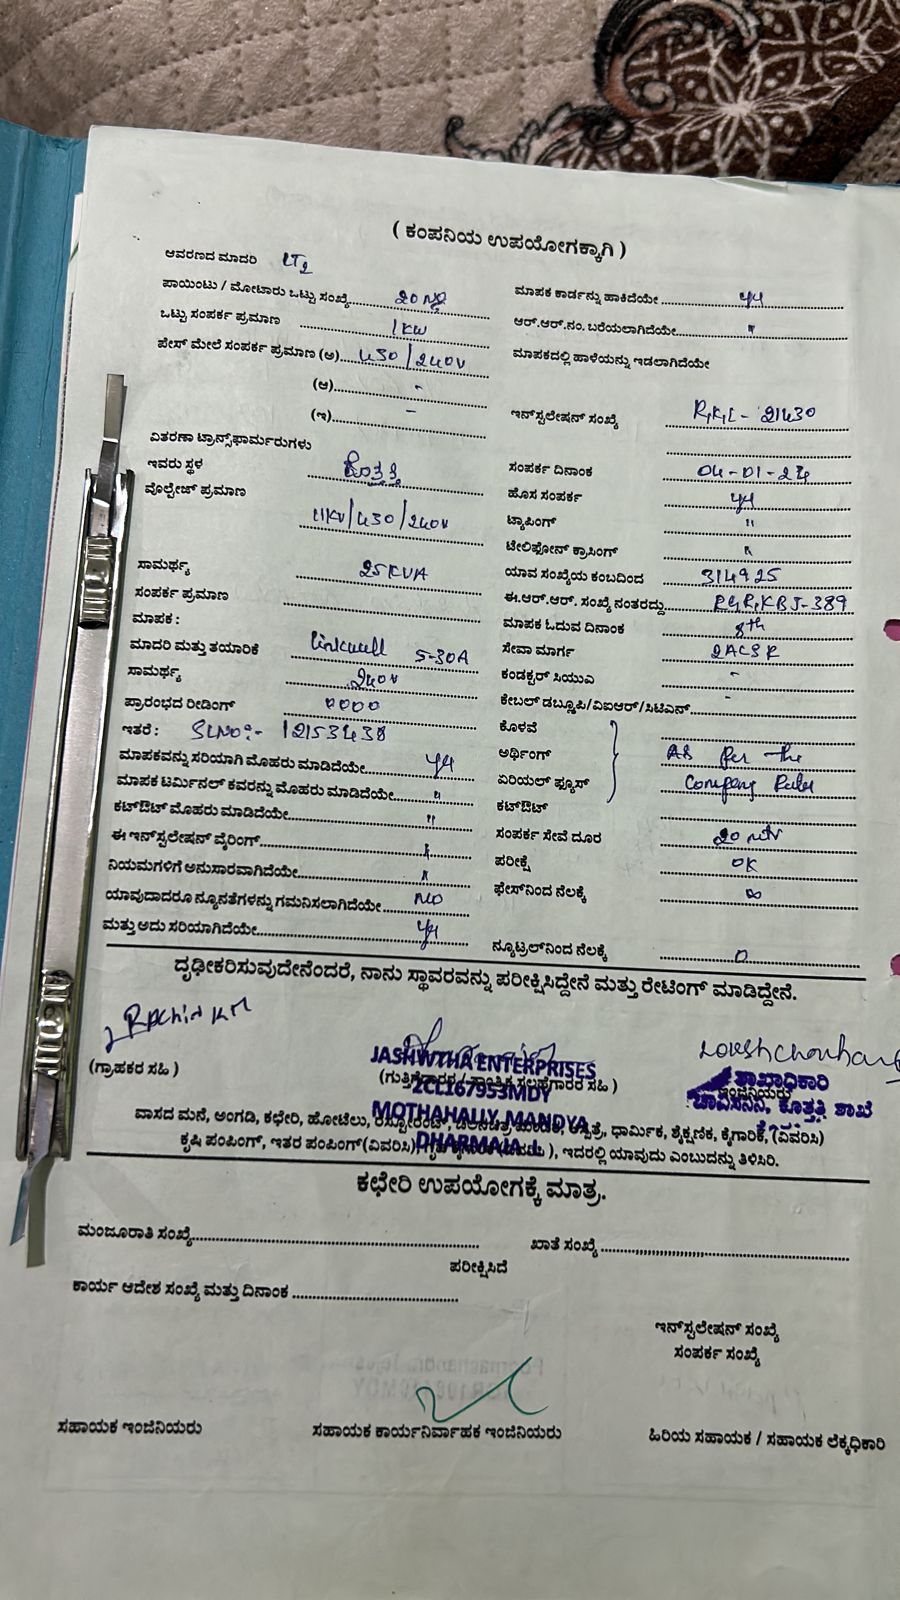 ( ಕಂಪನಿಯ ಉಪಯೋಗಕ್ಕಾಗಿ )
ಆವರಣದ ಮಾದರಿ LT2
ಪಾಯಿಂಟು / ಮೋಟಾರು ಒಟ್ಟು ಸಂಖ್ಯೆ 20
ಒಟ್ಟು ಸಂಪರ್ಕ ಪ್ರಮಾಣ 1KW
ಫೇಸ್ ಮೇಲೆ ಸಂಪರ್ಕ ಪ್ರಮಾಣ (ಅ) 430/240V
(ಆ) -
(ಇ) -
ವಿತರಣಾ ಟ್ರಾನ್ಸ್‌ಫಾರ್ಮರುಗಳು
ಇವರು ಸ್ಥಳ
ವೋಲ್ಟೇಜ್ ಪ್ರಮಾಣ
11KV/430/240V
ಸಾಮರ್ಥ್ಯ 25KVA
ಸಂಪರ್ಕ ಪ್ರಮಾಣ
ಮಾಪಕ :
ಮಾದರಿ ಮತ್ತು ತಯಾರಿಕೆ Linkwell 5-30A
ಸಾಮರ್ಥ್ಯ 240V
ಪ್ರಾರಂಭದ ರೀಡಿಂಗ್ 0000
ಇತರೆ : SLNO:- 12153438
ಮಾಪಕವನ್ನು ಸರಿಯಾಗಿ ಮೊಹರು ಮಾಡಿದೆಯೇ
ಮಾಪಕ ಟರ್ಮಿನಲ್ ಕವರನ್ನು ಮೊಹರು ಮಾಡಿದೆಯೇ "
ಕಟ್‌ಔಟ್ ಮೊಹರು ಮಾಡಿದೆಯೇ "
ಈ ಇನ್‌ಸ್ಟಲೇಷನ್ ವೈರಿಂಗ್
ನಿಯಮಗಳಿಗೆ ಅನುಸಾರವಾಗಿದೆಯೇ
ಯಾವುದಾದರೂ ನ್ಯೂನತೆಗಳನ್ನು ಗಮನಿಸಲಾಗಿದೆಯೇ NO
ಮತ್ತು ಅದು ಸರಿಯಾಗಿದೆಯೇ
ಮಾಪಕ ಕಾರ್ಡನ್ನು ಹಾಕಿದೆಯೇ
ಆರ್.ಆರ್.ನಂ. ಬರೆಯಲಾಗಿದೆಯೇ "
ಮಾಪಕದಲ್ಲಿ ಹಾಳೆಯನ್ನು ಇಡಲಾಗಿದೆಯೇ
ಇನ್‌ಸ್ಟಲೇಷನ್ ಸಂಖ್ಯೆ 21430
ಸಂಪರ್ಕ ದಿನಾಂಕ 04-01-24
ಹೊಸ ಸಂಪರ್ಕ
ಟ್ಯಾಪಿಂಗ್ "
ಟೆಲಿಫೋನ್ ಕ್ರಾಸಿಂಗ್
ಯಾವ ಸಂಖ್ಯೆಯ ಕಂಬದಿಂದ 314925
ಈ.ಆರ್.ಆರ್. ಸಂಖ್ಯೆ ನಂತರದ್ದು
ಮಾಪಕ ಓದುವ ದಿನಾಂಕ 8th
ಸೇವಾ ಮಾರ್ಗ 2ACSR
ಕಂಡಕ್ಟರ್ ಸಿಯುಎ -
ಕೇಬಲ್ ಡಬ್ಲೂಪಿ/ವಿಐಆರ್/ಸಿಟಿಎನ್ -
ಕೊಳವೆ
ಅರ್ಥಿಂಗ್ As per the
ಏರಿಯಲ್ ಫ್ಯೂಸ್ Company Rules
ಕಟ್‌ಔಟ್
ಸಂಪರ್ಕ ಸೇವೆ ದೂರ 20 mtr
ಪರೀಕ್ಷೆ OK
ಫೇಸ್‌ನಿಂದ ನೆಲಕ್ಕೆ ∞
ನ್ಯೂಟ್ರಲ್‌ನಿಂದ ನೆಲಕ್ಕೆ 0
ದೃಢೀಕರಿಸುವುದೇನೆಂದರೆ, ನಾನು ಸ್ಥಾವರವನ್ನು ಪರೀಕ್ಷಿಸಿದ್ದೇನೆ ಮತ್ತು ರೇಟಿಂಗ್ ಮಾಡಿದ್ದೇನೆ.
(ಗ್ರಾಹಕರ ಸಹಿ )
JASHWTHA ENTERPRISES
2CL167953MDY
MOTHAHALLY, MANDYA
DHARMAJA J.
ಶಾಖಾಧಿಕಾರಿ
ಚಾವಿಸನಿನಿ, ಕೊತ್ತತ್ತಿ ಶಾಖೆ
ವಾಸದ ಮನೆ, ಅಂಗಡಿ, ಕಛೇರಿ, ಹೋಟೆಲು, ಧಾರ್ಮಿಕ, ಶೈಕ್ಷಣಿಕ, ಕೈಗಾರಿಕೆ, (ವಿವರಿಸಿ)
ಕೃಷಿ ಪಂಪಿಂಗ್, ಇತರ ಪಂಪಿಂಗ್ (ವಿವರಿಸಿ), ಇದರಲ್ಲಿ ಯಾವುದು ಎಂಬುದನ್ನು ತಿಳಿಸಿರಿ.
ಕಛೇರಿ ಉಪಯೋಗಕ್ಕೆ ಮಾತ್ರ.
ಮಂಜೂರಾತಿ ಸಂಖ್ಯೆ
ಖಾತೆ ಸಂಖ್ಯೆ
ಪರೀಕ್ಷಿಸಿದೆ
ಕಾರ್ಯ ಆದೇಶ ಸಂಖ್ಯೆ ಮತ್ತು ದಿನಾಂಕ
ಇನ್‌ಸ್ಟಲೇಷನ್ ಸಂಖ್ಯೆ
ಸಂಪರ್ಕ ಸಂಖ್ಯೆ
ಸಹಾಯಕ ಇಂಜಿನಿಯರು
ಸಹಾಯಕ ಕಾರ್ಯನಿರ್ವಾಹಕ ಇಂಜಿನಿಯರು
ಹಿರಿಯ ಸಹಾಯಕ / ಸಹಾಯಕ ಲೆಕ್ಕಧಿಕಾರಿ